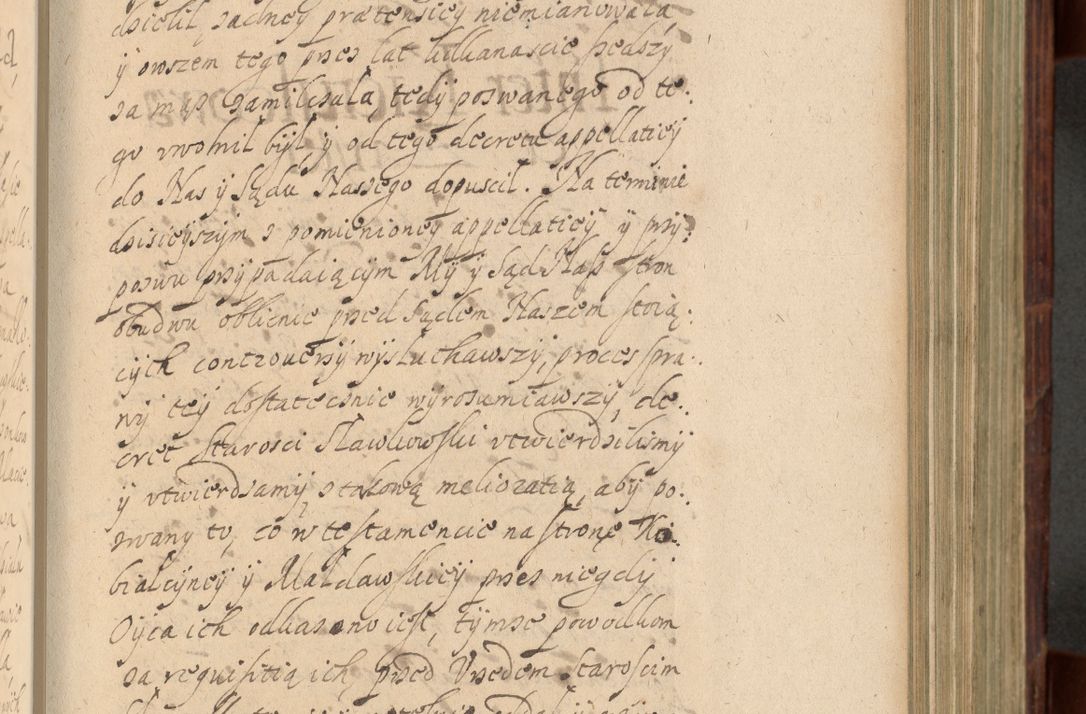 dzielił, zadney prætensiey niemianowała
ÿ owszem tego przes lat kilkanascie będszÿ
za męz zamilczała, tedÿ pozwanego od te:
go vwolnił bÿł, ÿ od tego decretu appellatieÿ
do Nas ÿ Sądu Naszego dopuscił. Na terminie
dzisieÿszÿm z pomienioneÿ appellatieÿ ÿ prÿ:
pozwu przÿpadaiącÿm Mÿ ÿ Sąd Nasz stron
obudwu oblicnie przed Sądem Naszem stoią:
cÿch controuersÿ wÿsłuchawszÿ, proces spra:
wÿ teÿ dostatecznie wÿrozumiawszÿ, de:
cret Starosci Sławkowski vtwierdziliśmÿ
ÿ vtwierdzamÿ z takową melioratią, abÿ po:
zwany to, co w testamencie na stronę Ko:
bialcÿneÿ ÿ Małdawskieÿ przes niegdÿ
Oÿca ich odkazano iest, tÿmze powodkom
za requisitią ich, przed Vrzędem Staroscim